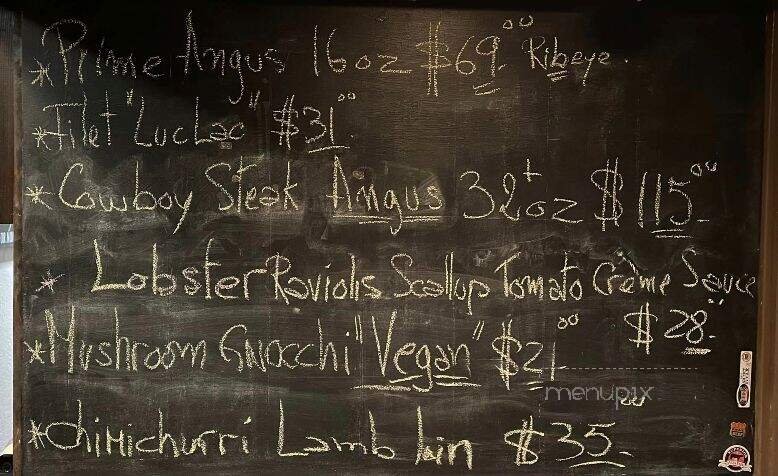 * Prime Angus 16oz $69.00 Ribeye.
* Filet "LucLac" $31.00
* Cowboy Steak Angus 32+oz $115.00
* Lobster Raviolis Scallup Tomato Crème Sauce
$28.
* Mushroom Gnocchi "Vegan" $21.00
menupix
* Chimichurri Lamb loin $35.00